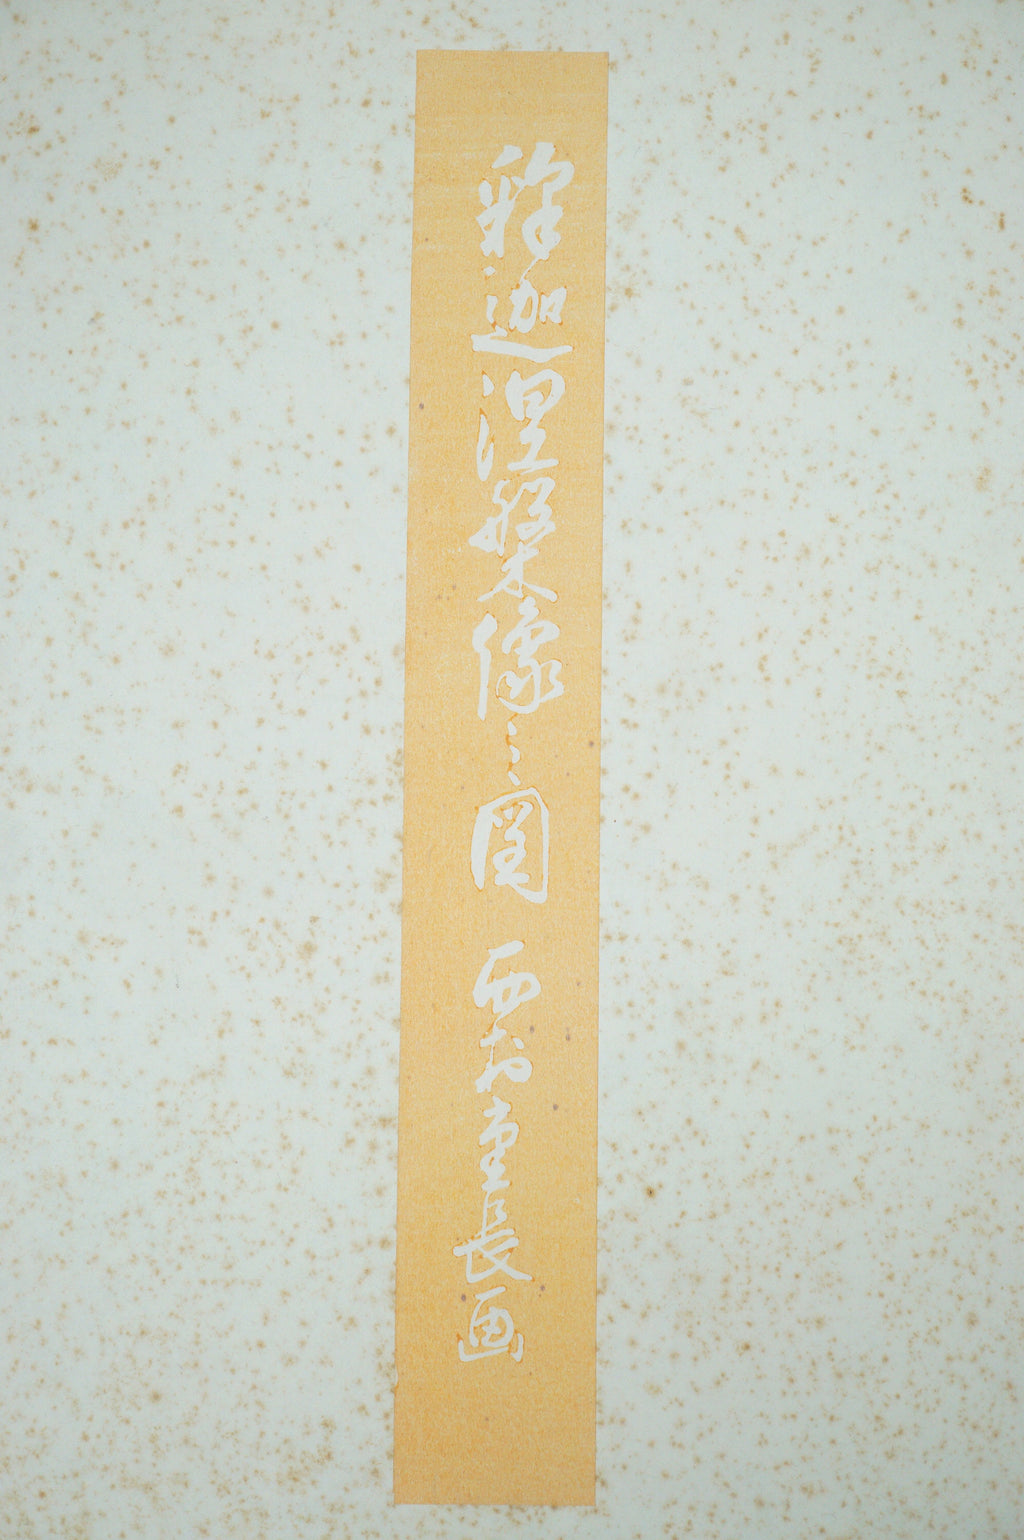 釋迦涅槃像之圖 西村重長画